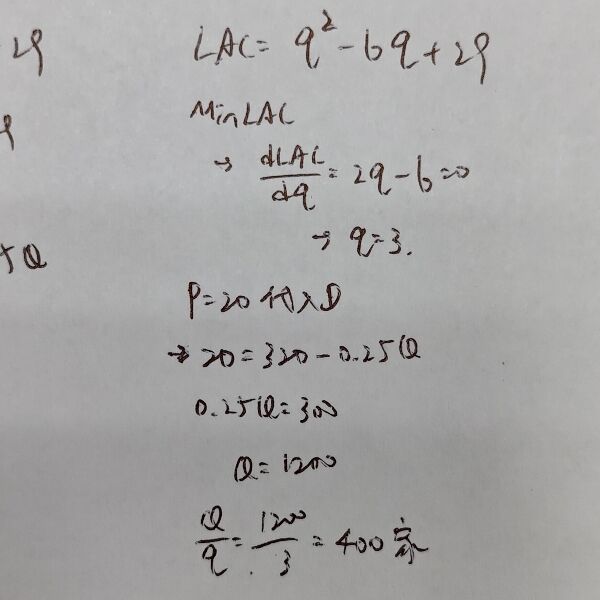 29
9
5Q
LAC = q² - 6q + 29
Min LAC
→ dLAC/dq = 2q - 6 = 0
→ q = 3.
P = 20 代入 D
→ 20 = 320 - 0.25Q
0.25Q = 300
Q = 1200
Q/q = 1200/3 = 400 家